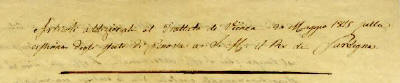 Articoli addizionali al Trattato di Vienna 20 Maggio 1815 sulla
cessione degli Stati di Genova a S. M. il Re di Sardegna